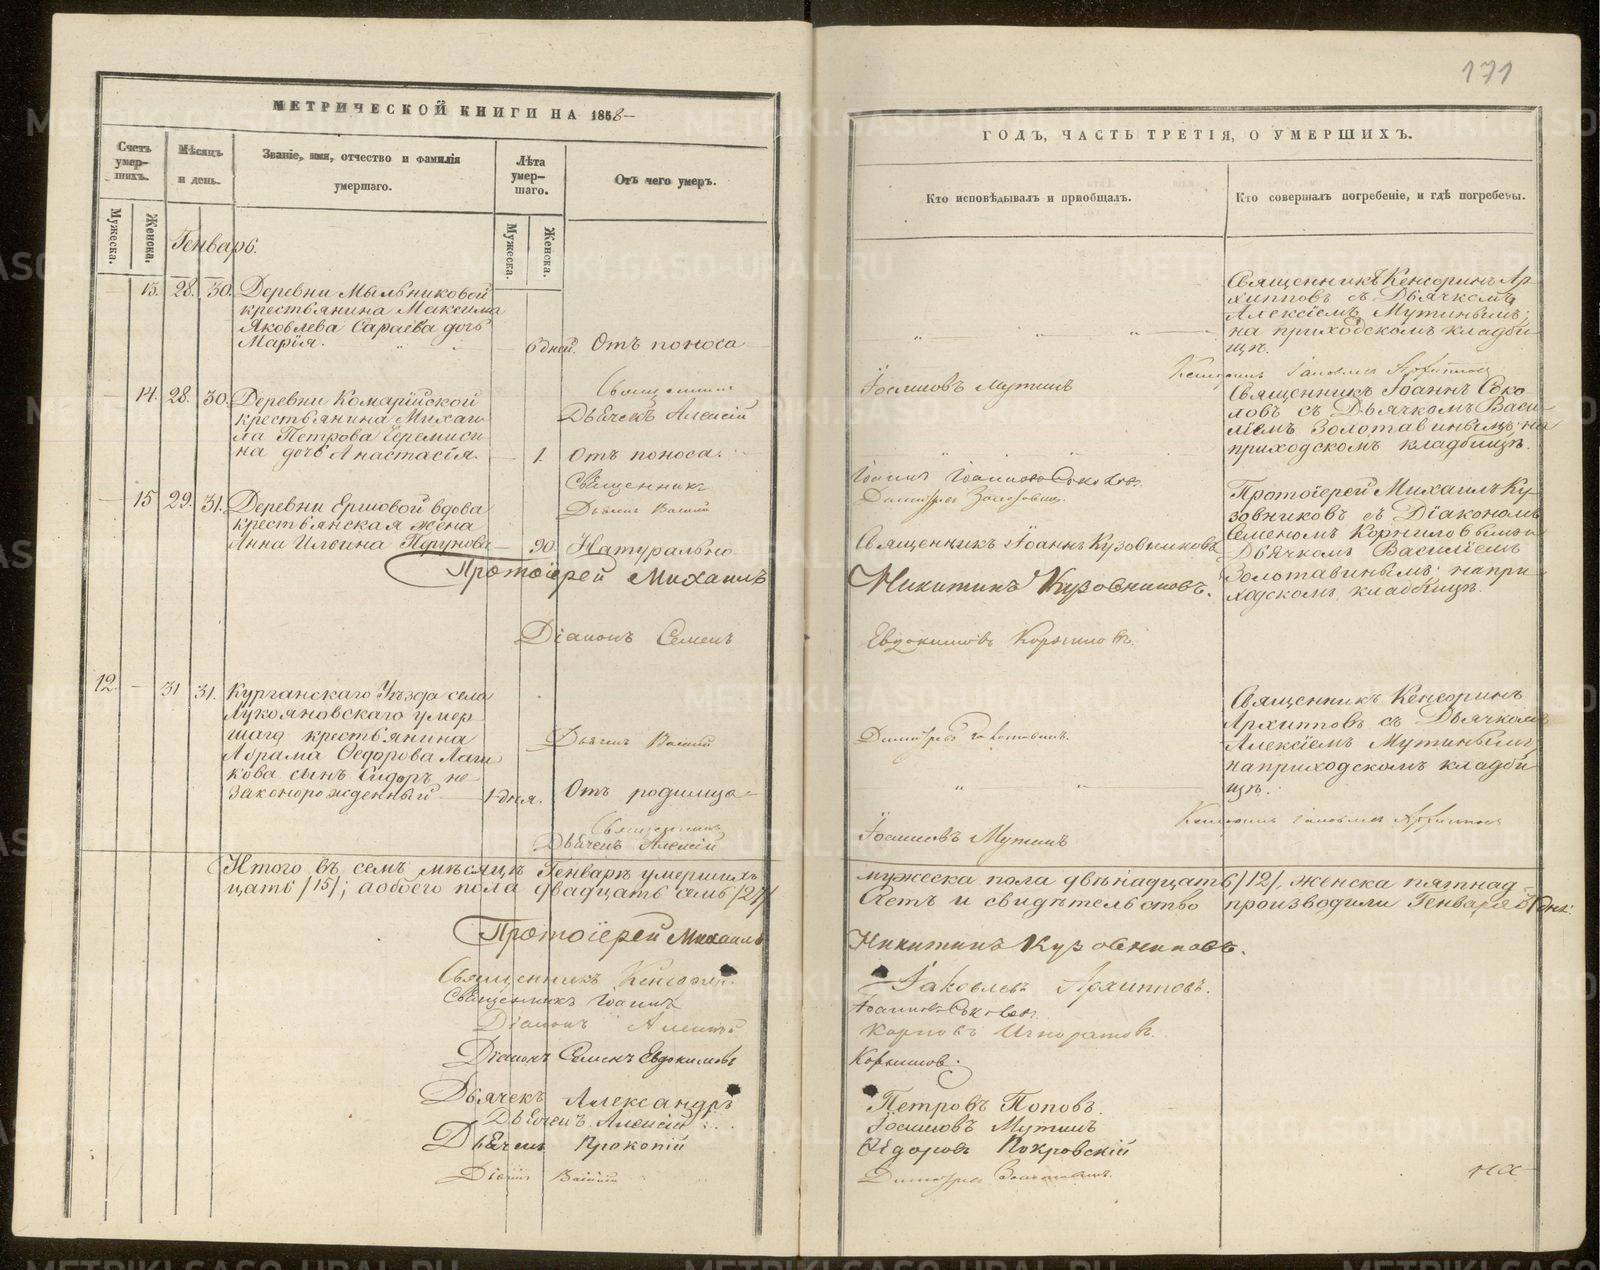 171
МЕТРИЧЕСКОЙ КНИГИ НА 1858
ГОДЪ, ЧАСТЬ ТРЕТІЯ, О УМЕРШИХЪ.
Счетъ умер-
шихъ.
Мужеска.
Женска.
Мѣсяцъ
и день.
Званіе, имя, отчество и фамилія
умершаго.
Лѣта
умер-
шаго.
Мужеска.
Женска.
Отъ чего умеръ.
Кто исповѣдывалъ и пріобщалъ.
Кто совершалъ погребеніе, и гдѣ погребены.
Генварь.
13. 28. 30. Деревни Мыльниковой
крестьянина Максима
Яковлева Сараева дочь
Марія. 6 дней. Отъ поноса
Священникъ Кенсоринъ Ар-
хипповъ съ Дьячкомъ
Алексіемъ Мутинымъ;
на приходскомъ кладби-
щѣ.
Священникъ
Дьячекъ Алексій Іосифовъ Мутинъ
14. 28. 30. Деревни Комарійской
крестьянина Михаи-
ла Петрова Еремиси-
на дочь Анастасія. 1. Отъ поноса.
Священникъ Іоаннъ Соко-
ловъ съ Дьячкомъ Васи-
ліемъ Золотавинымъ на
приходскомъ кладбищѣ.
Священникъ Іоаннъ Іоанновъ Соколовъ
15 29. 31. Деревни Ершовой вдова
крестьянская жена
Анна Ильина Перунова 90. Натурально
Священникъ Іоаннъ Кузовниковъ
Протоіерей Михаилъ Ку-
зовниковъ съ Діакономъ
Семеномъ Корниловымъ и
Дьячкомъ Василіемъ
Золотавинымъ на при-
ходскомъ кладбищѣ.
Протоіерей Михаилъ Никитинъ Кузовниковъ.
Діаконъ Семенъ Евдокимовъ Корниловъ.
12. 31 31. Курганскаго Уѣзда села
Лукояновскаго умер-
шаго крестьянина
Абрама Ѳедорова
сынъ Сидоръ не-
законорожденный 1 дня. Отъ родимца
Священникъ Кенсоринъ
Архипповъ съ Дьячкомъ
Алексіемъ Мутинымъ
на приходскомъ кладби-
щѣ.
Священникъ
Дьячекъ Алексій Іосифовъ Мутинъ
Итого въ семъ мѣсяцѣ Генварѣ умершихъ мужеска пола двѣнадцать /12/, женска пятнад-
цать /15/; а обоего пола двадцать семь /27/ Счетъ и свидѣтельство производили Генваря 31 дня:
Протоіерей Михаилъ Никитинъ Кузовниковъ.
Священникъ Кенсоринъ Іаковлевъ Архипповъ.
Священникъ Іоаннъ Іоанновъ Соколовъ
Діаконъ Алексій Карповъ Игноратовъ.
Діаконъ Семенъ Евдокимовъ Корниловъ.
Дьячекъ Александръ Петровъ Поповъ.
Дьячекъ Алексій Іосифовъ Мутинъ
Дьячекъ Прокопій Ѳедоровъ Покровскій